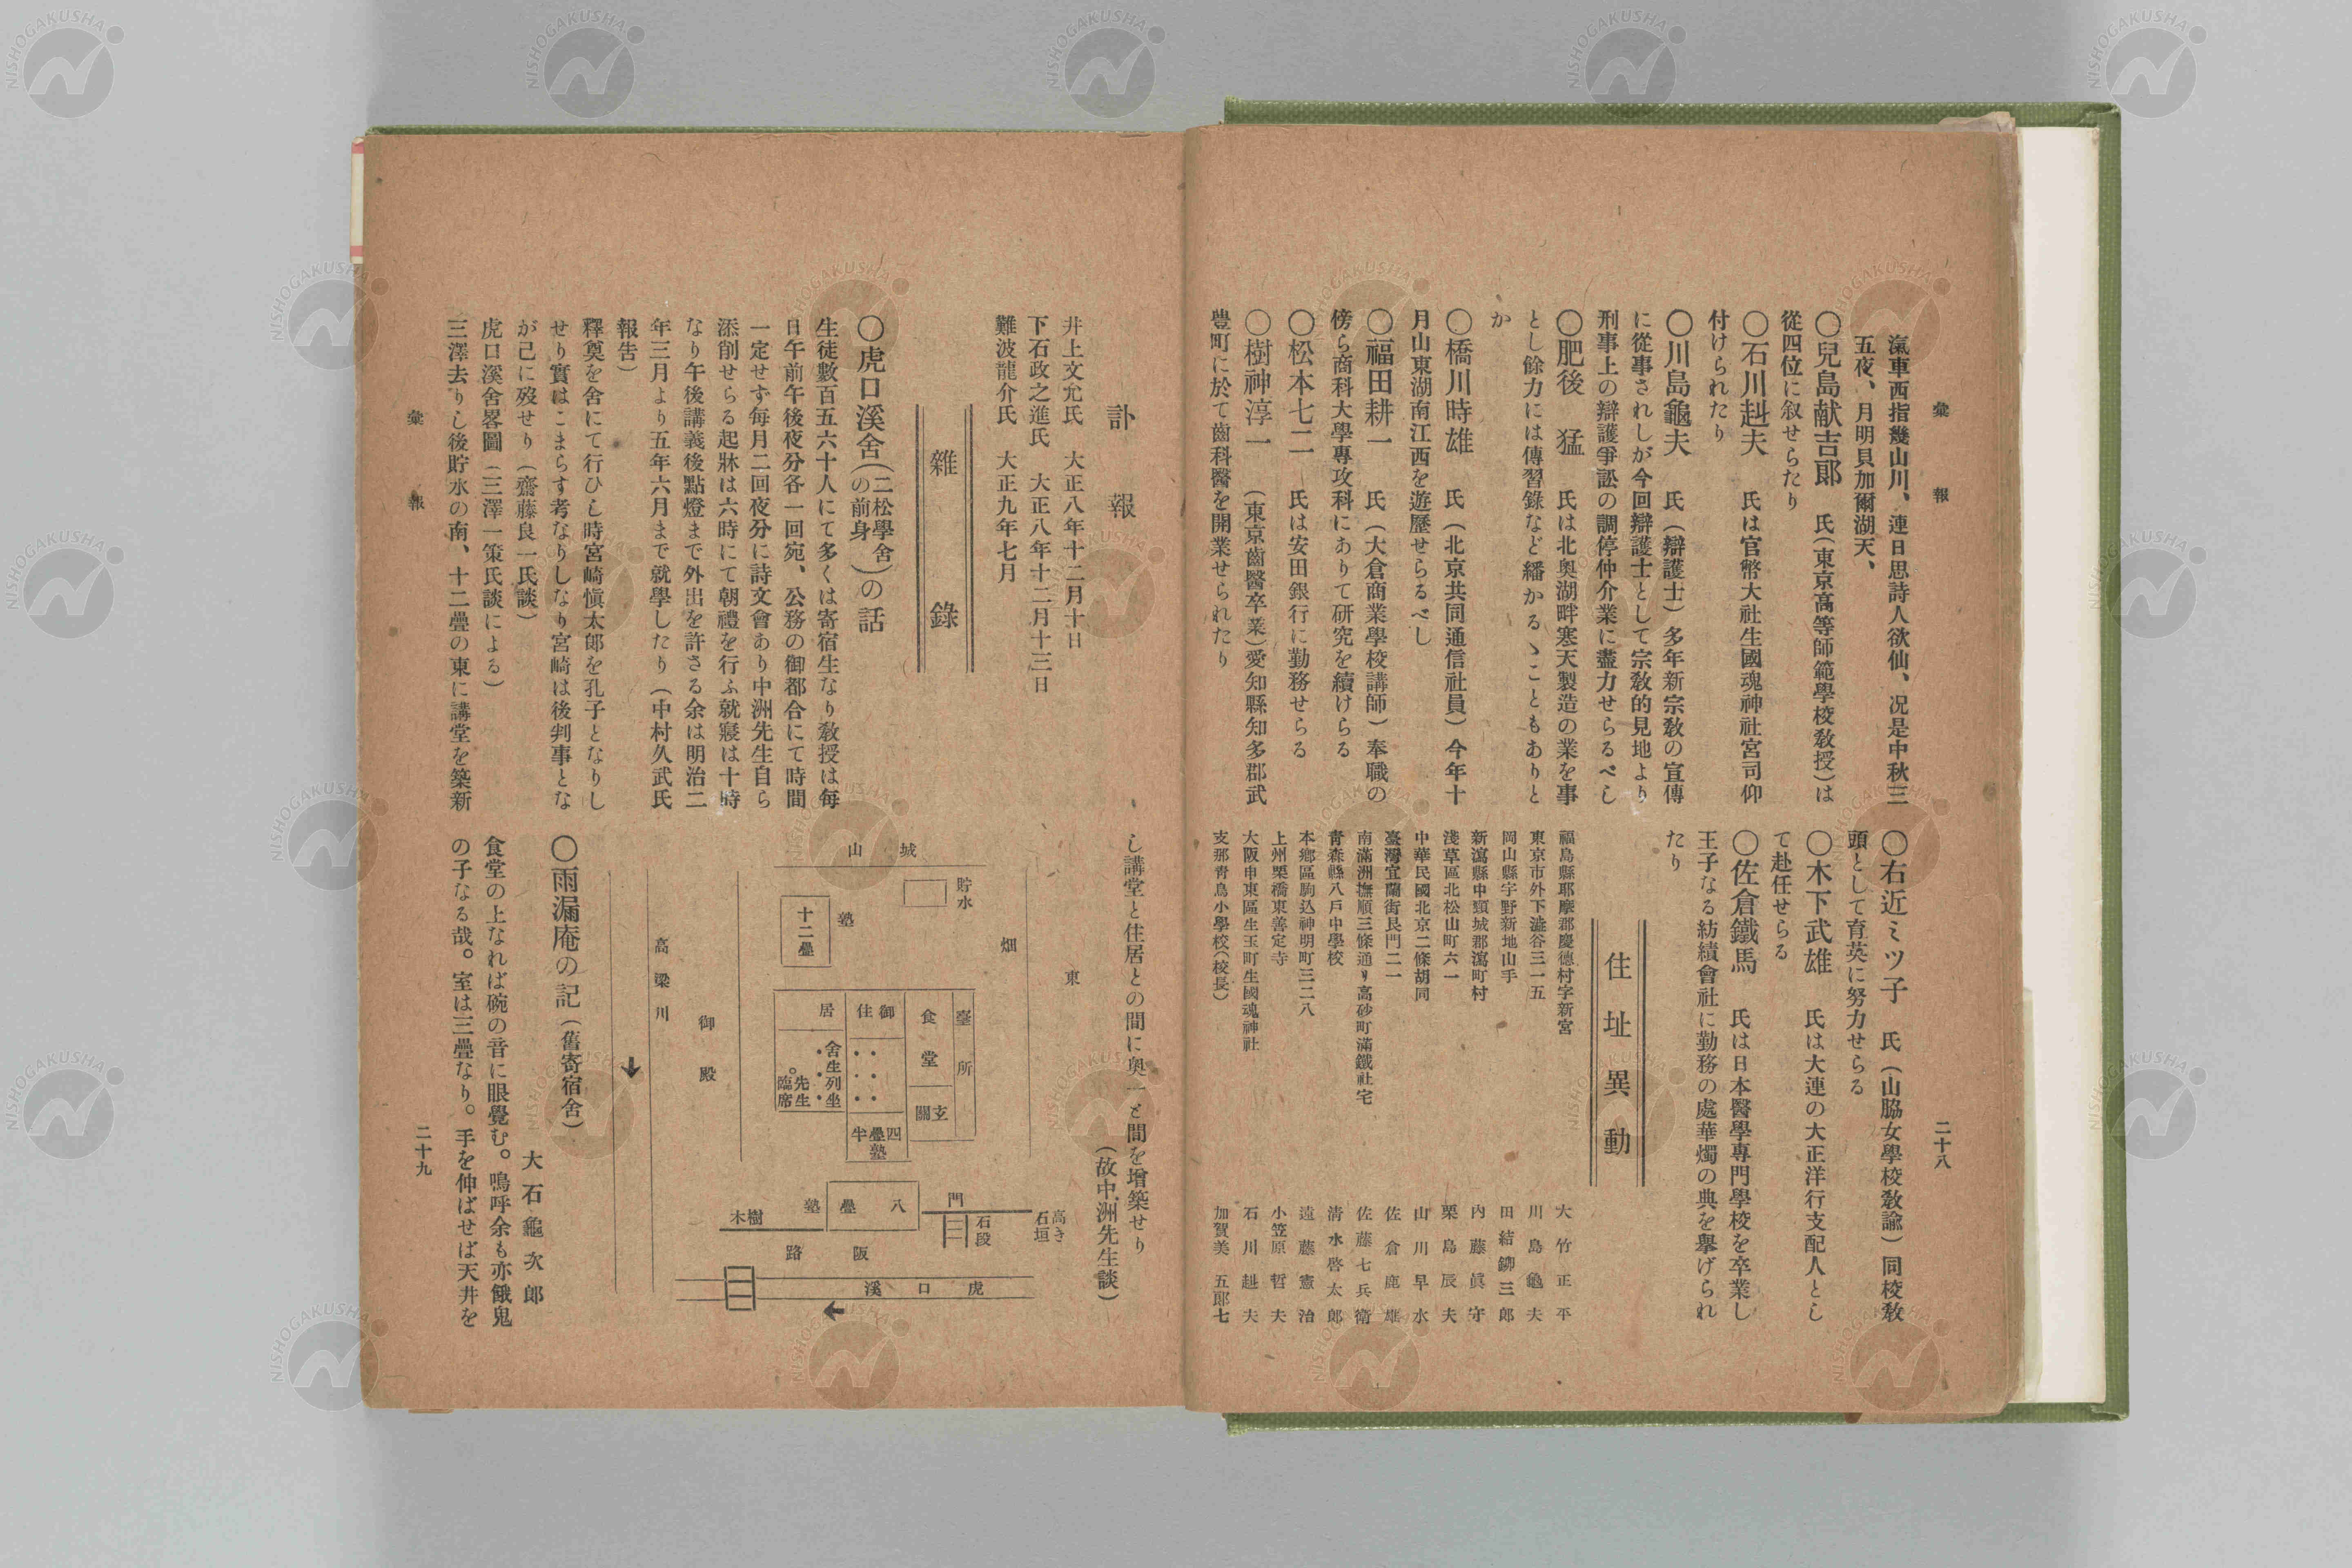 彙報
二十八
滊車西指幾山川、連日思詩人欲仙、况是中秋三
五夜、月明貝加爾湖天、
〇兒島献吉郎 氏(東京高等師範學校教授)は
從四位に叙せらたり
〇石川赳夫 氏は官幣大社生國魂神社宮司仰
付けられたり
〇川島龜夫 氏(辯護士)多年新宗教の宣傳
に從事されしが今回辯護士として宗教的見地より
刑事上の辯護爭訟の調停仲介業に盡力せらるべし
〇肥後 猛 氏は北奥湖畔寒天製造の業を事
とし餘力には傳習錄など繙かるゝこともありと
か
〇橋川時雄 氏(北京共同通信社員)今年十
月山東湖南江西を遊歷せらるべし
〇福田耕一 氏(大倉商業學校講師)奉職の
傍ら商科大學專攻科にありて研究を續けらる
〇松本七二 氏は安田銀行に勤務せらる
〇樹神淳一 (東京齒醫卒業)愛知縣知多郡武
豊町に於て齒科醫を開業せられたり
〇右近ミツ子 氏(山脇女學校教諭)同校教
頭として育英に努力せらる
〇木下武雄 氏は大連の大正洋行支配人とし
て赴任せらる
〇佐倉鐵馬 氏は日本醫學專門學校を卒業し
王子なる紡績會社に勤務の處華燭の典を擧げられ
たり
住址異動
福島縣耶摩郡慶德村字新宮 大竹正平
東京市外下澁谷三一五 川島龜夫
岡山縣宇野新地山手 田結鉚三郎
新瀉縣中頸城郡瀉町村 内藤眞守
淺草區北松山町六一 栗島辰夫
中華民國北京二條胡同 山川早水
臺灣宜蘭街艮門二一 佐倉鹿雄
南滿洲撫順三條通リ高砂町滿鐵社宅 佐藤七兵衛
青森縣八戸中學校 清水啓太郎
本鄕區駒込神明町三二八 遠藤憲治
上州栗橋東善定寺 小笠原哲夫
大阪市東區生玉町生國魂神社 石川赳夫
支那青島小學校(校長) 加賀美五郎七
訃報
井上文允氏 大正八年十二月十日
下石政之進氏 大正八年十二月十三日
難波龍介氏 大正九年七月
雜錄
〇虎口溪舍(二松學舍の前身)の話
生徒數百五六十人にて多くは寄宿生なり教授は毎
日午前午後夜分各一回宛、公務の御都合にて時間
一定せず毎月二回夜分に詩文會あり中洲先生自ら
添削せらる起牀は六時にて朝禮を行ふ就寢は十時
なり午後講義後點燈まで外出を許さる余は明治二
年三月より五年六月まで就學したり(中村久武氏
報告)
釋奠を舍にて行ひし時宮崎愼太郎を孔子となりし
せり實はこまらす考なりしなり宮崎は後判事とな
が已に歿せり(齋藤良一氏談)
虎口溪舍畧圖(三澤一策氏談による)
三澤去りし後貯水の南、十二疊の東に講堂を築新
し講堂と住居との間に奥一と間を增築せり
(故中洲先生談)
東
城山
貯水
畑
塾
十二疊
臺所
食堂
玄關
御住
居
舍生列坐
先生臨席
四疊半塾
御殿
高梁川
門
石段
高き石垣
八疊塾
樹木
阪路
虎口溪
〇雨漏庵の記(舊寄宿舍)
大石龜次郎
食堂の上なれば碗の音に眼覺む。嗚呼余も亦餓鬼
の子なる哉。室は三疊なり。手を伸ばせば天井を
彙報
二十九
NISHOGAKUSHA